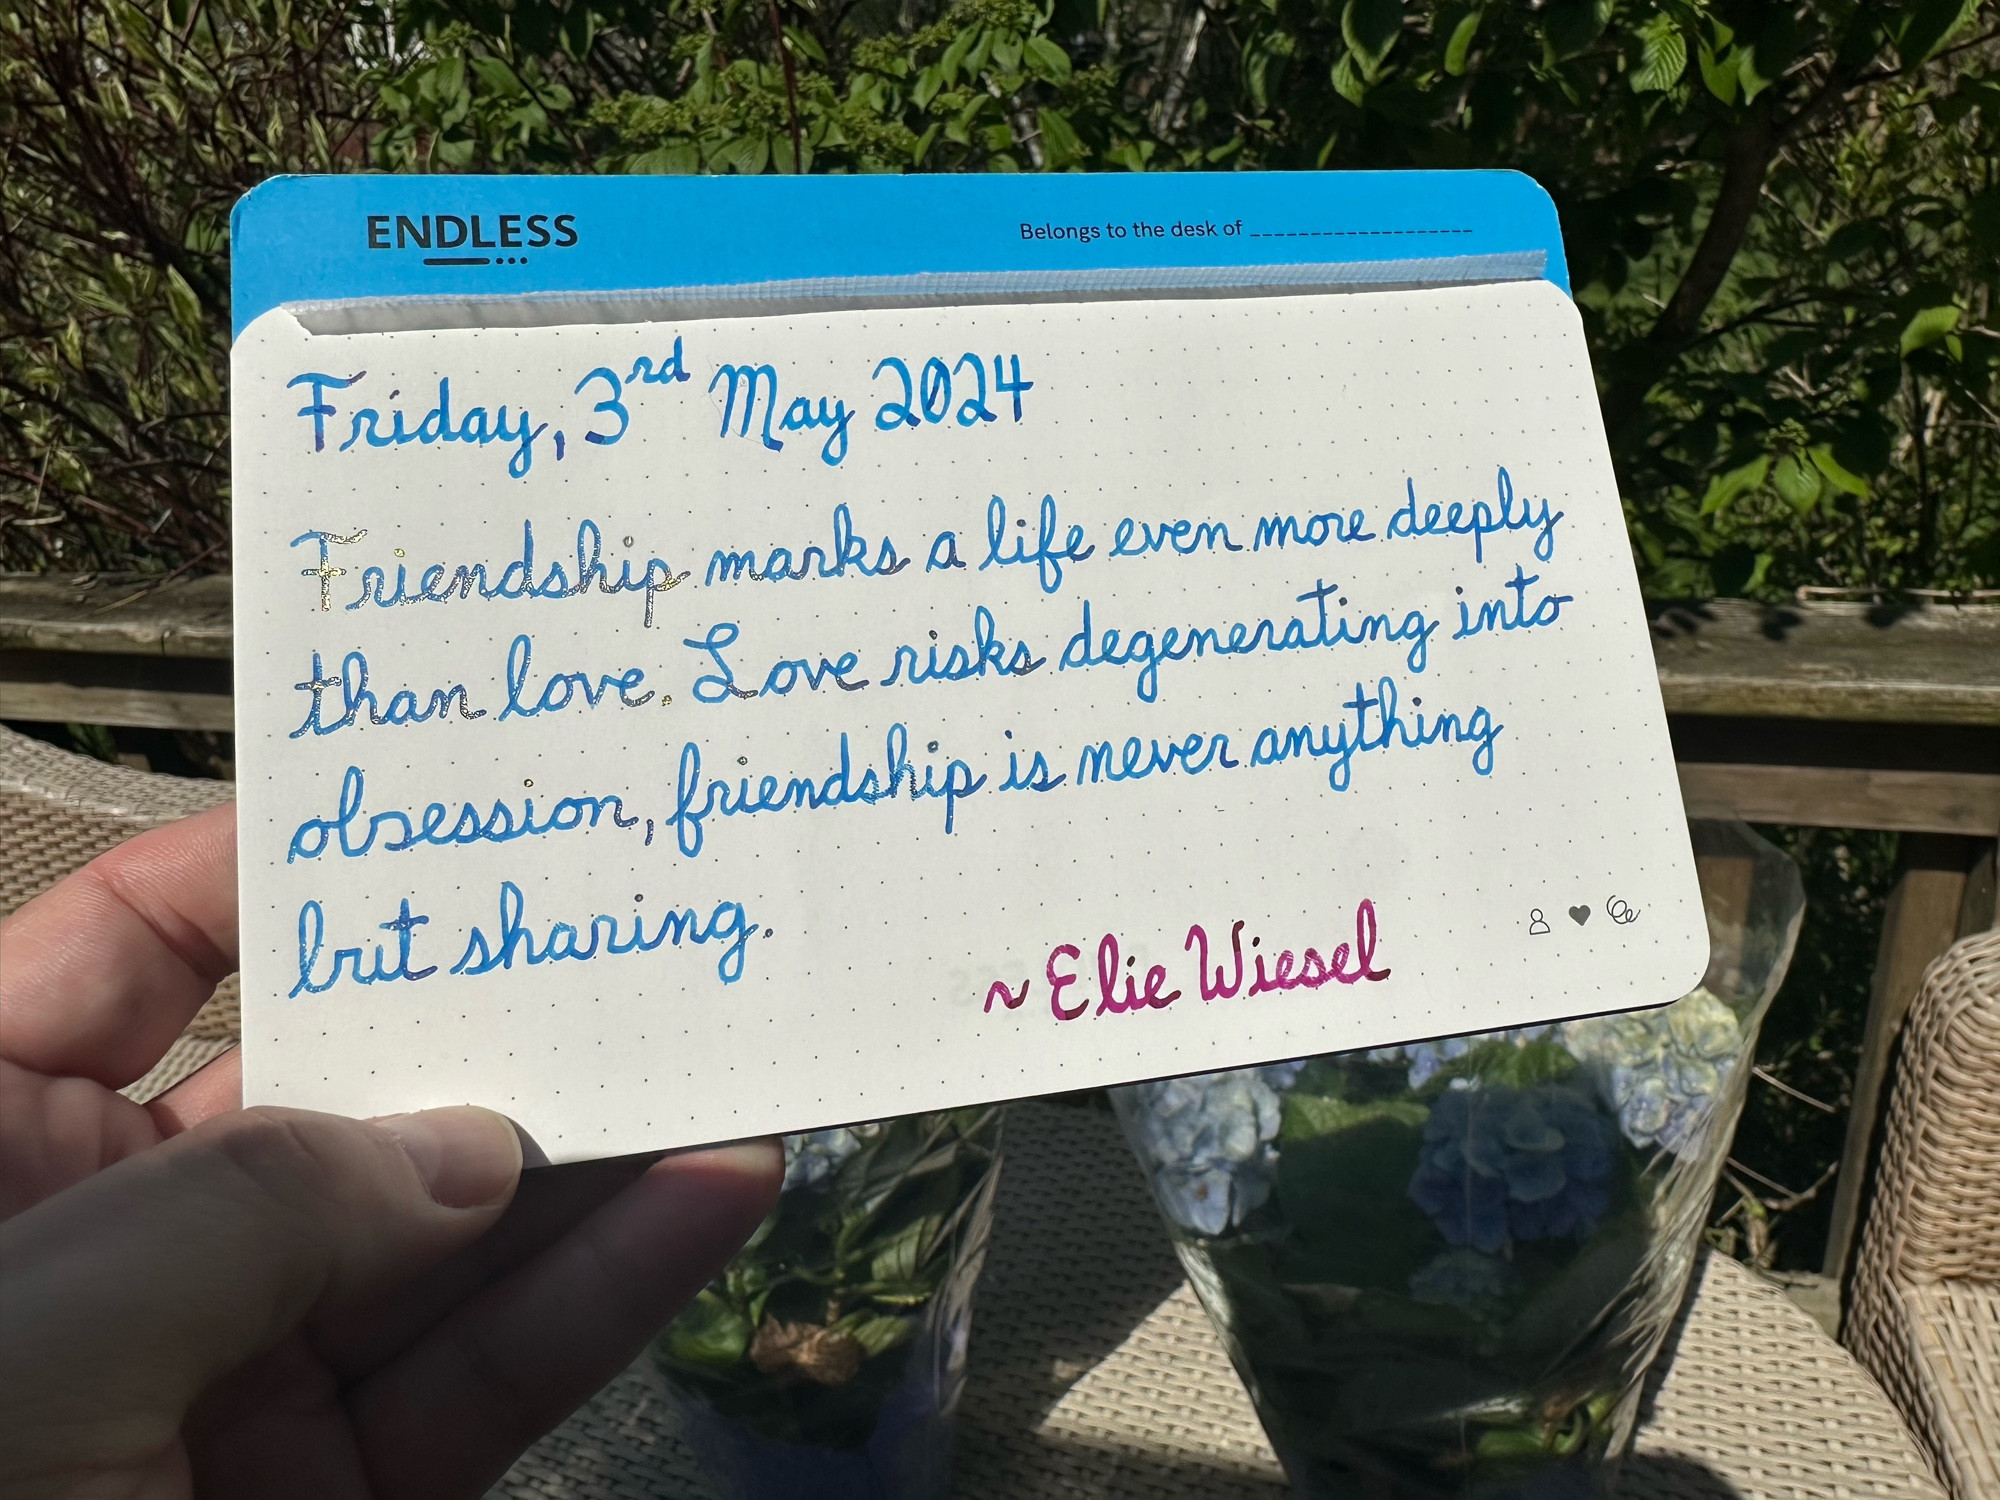 ENDLESS
Belongs to the desk of ___________________
Friday, 3rd May 2024
Friendship marks a life even more deeply
than love. Love risks degenerating into
obsession, friendship is never anything
but sharing.
~ Elie Wiesel